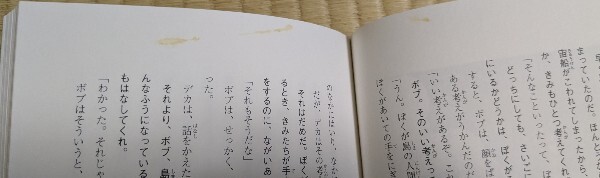 まっていたのだ。ほんとう
宙船がこわれてしまったから、
か、きみもひとつ考えてくれ
「そんなこといったって、ぼ
どっちにしても、さいご
にいるかどうかは、ぼくが
すると、ボブは、顔をぱ
ある考えがうかんだのだ
「いい考えがあるぞ。こ
ボブ。そのいい考えっ
「うん。ぼくが島の人
ぼくがあいての手をにぎ
のなかにはいり、なか
だが、デカはその考
それはだめだ。ぼく
るとき、きみたちが手
をするのに、ながいあ
「それもそうだな」
ボブは、せっかく、
った。
デカは、話をかえた
それより、ボブ、島
んなふうになっている
もはなしてくれ。
「わかった。それじゃ
ボブはそういうと、